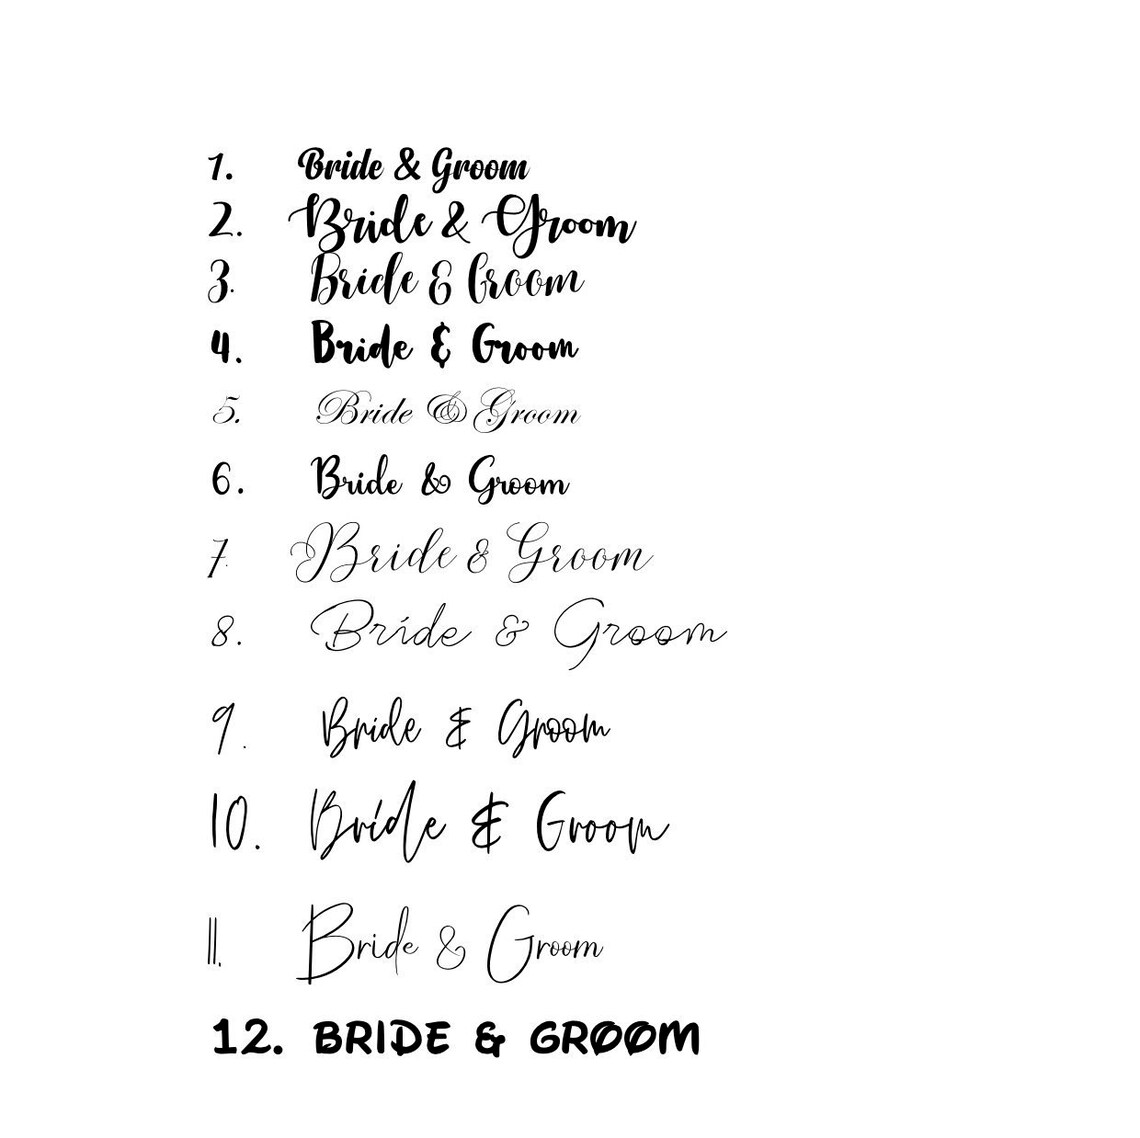 1. Bride & Groom
2. Bride & Groom
3. Bride & Groom
4. Bride & Groom
5. Bride & Groom
6. Bride & Groom
7. Bride & Groom
8. Bride & Groom
9. Bride & Groom
10. Bride & Groom
11. Bride & Groom
12. BRIDE & GROOM